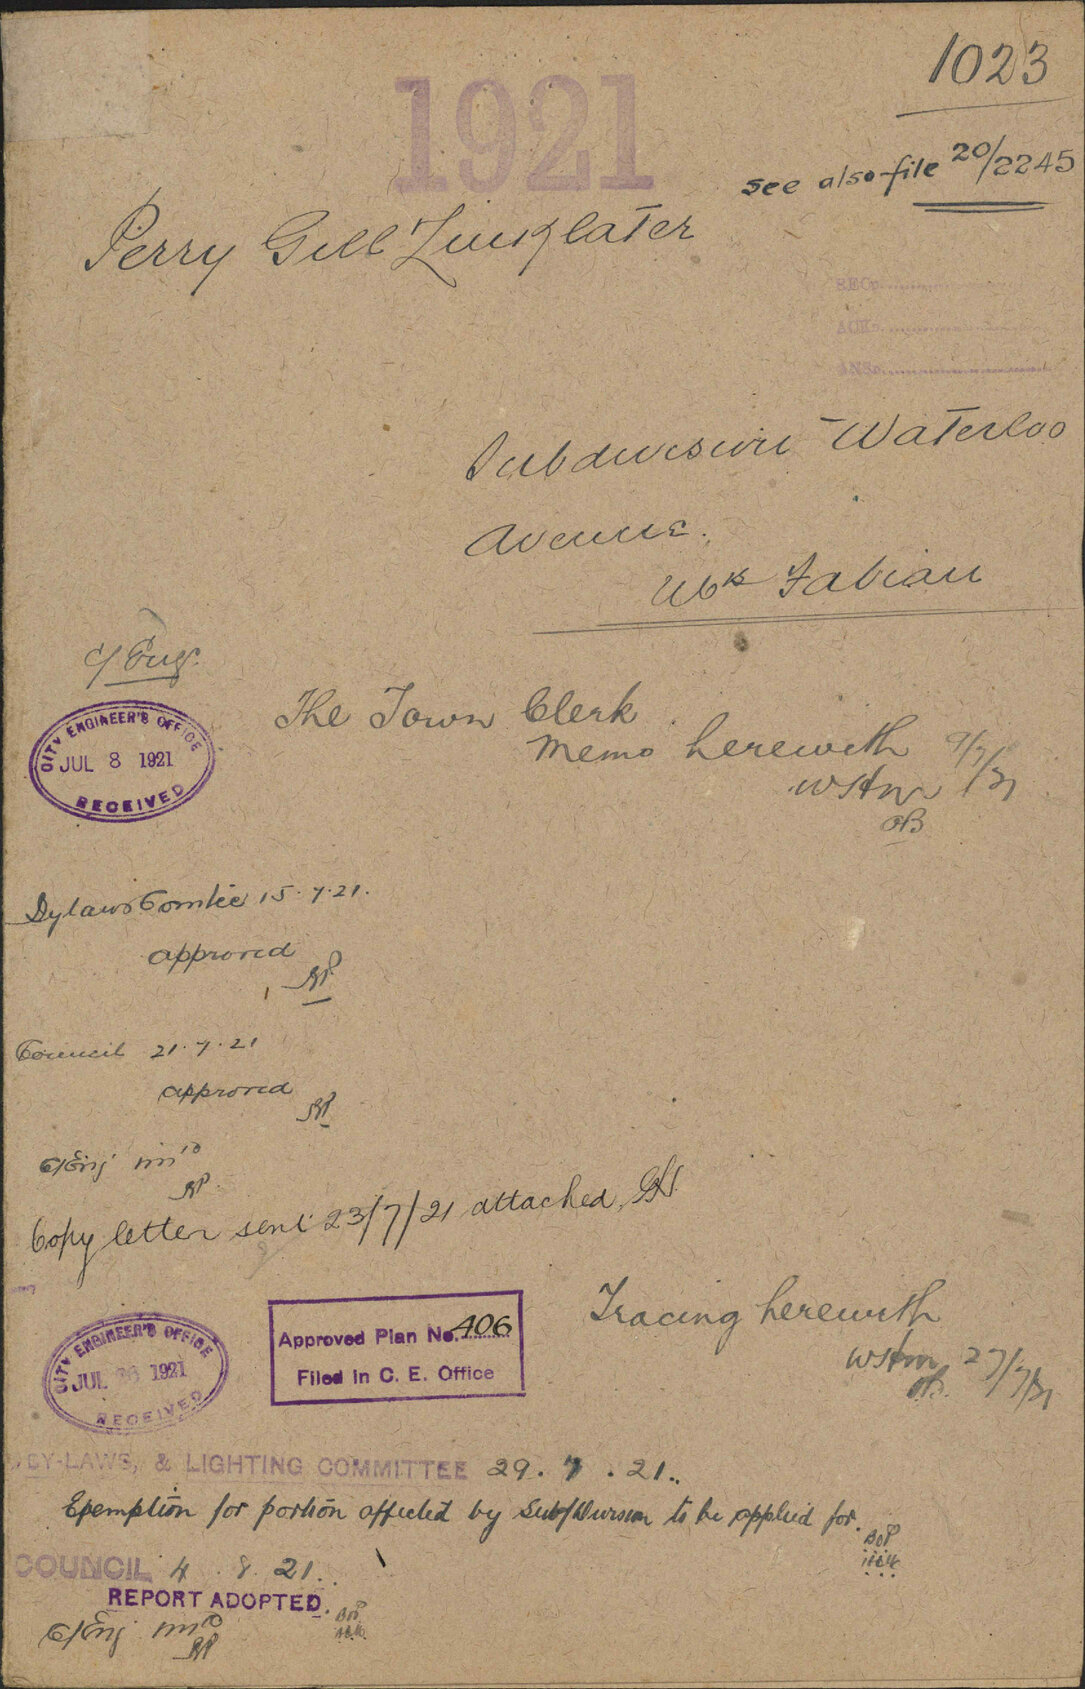 1921
1023
see also file 20/2245
Perry Gill Linklater
SEC.
ACK.
ANS.
Subdivision Waterloo
Avenue.
Fabian
C/Eng.
CITY ENGINEER'S OFFICE
JUL 8 1921
RECEIVED
The Town Clerk
Memo herewith 9/7/21
WSTM
OB
Bylaws Comtee 15.7.21.
approved
Council 21.7.21
approved
C/Eng
Copy letter sent 23/7/21 attached,
CITY ENGINEER'S OFFICE
JUL 26 1921
RECEIVED
Approved Plan No. 406
Filed in C. E. Office
Tracing herewith
27/7/21
OB.
BY-LAWS, & LIGHTING COMMITTEE 29.7.21.
Exemption for portion affected by Subdivision to be applied for.
COUNCIL 4.8.21.
REPORT ADOPTED.
C/Eng